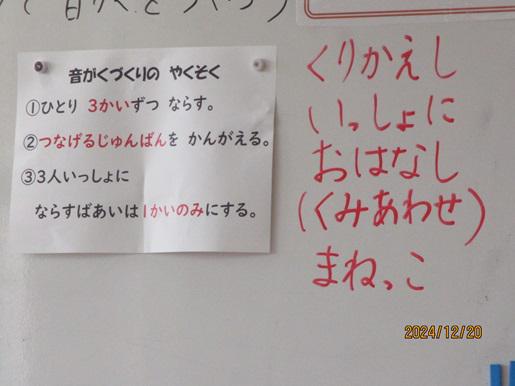 音がくづくりの やくそく
①ひとり 3かいずつ ならす。
②つなげるじゅんばんを かんがえる。
③3人いっしょに
ならすばあいは1かいのみにする。
くりかえし
いっしょに
おはなし
(くみあわせ)
まねっこ
2024/12/20